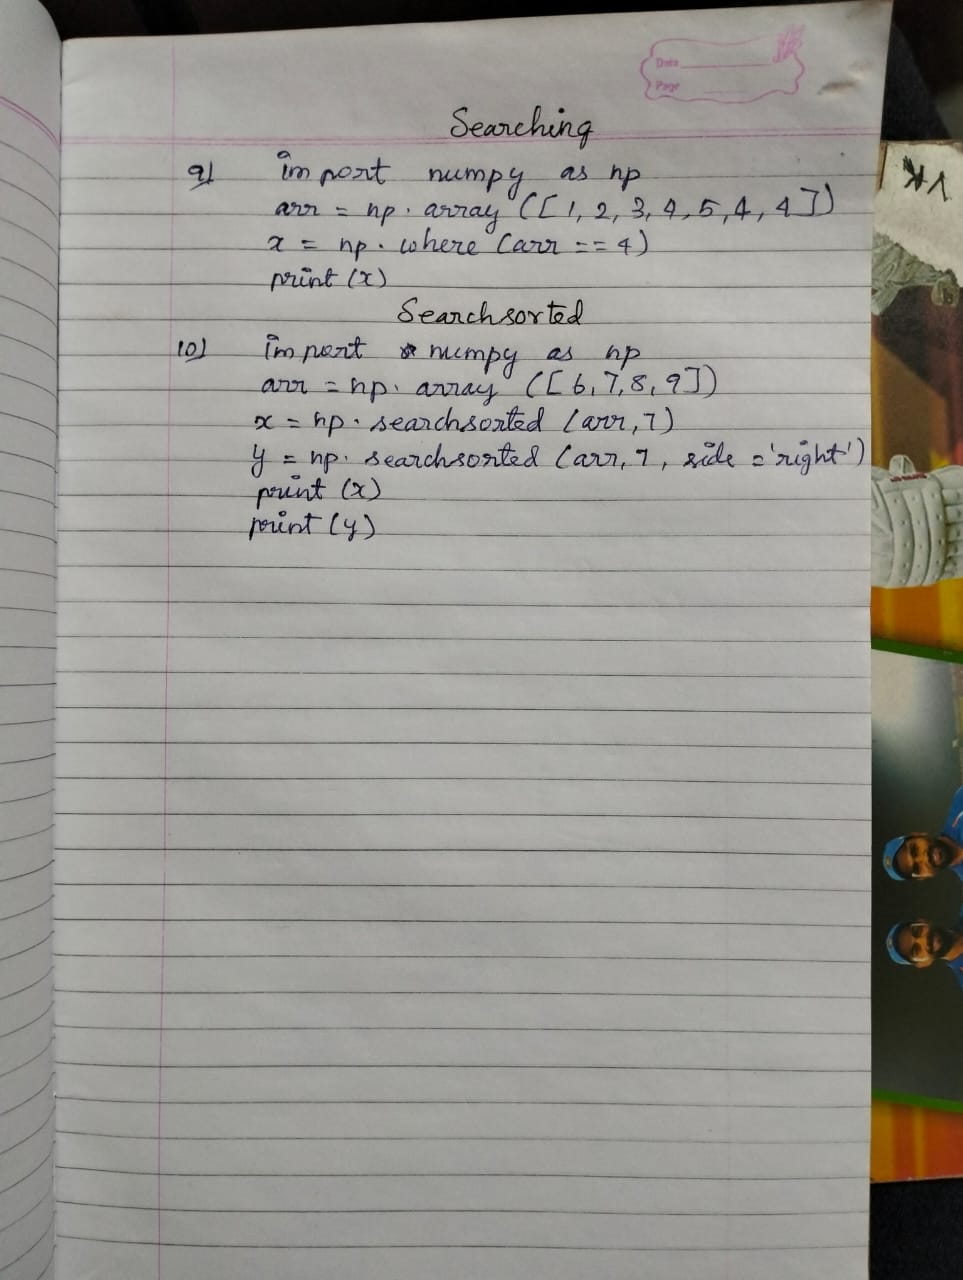 Date
Page
Searching
9) import numpy as np
arr = np. array ([1, 2, 3, 4, 5, 4, 4])
x = np. where (arr == 4)
print (x)
Searchsorted
10) import numpy as np
arr = np. array ([6, 7, 8, 9])
x = np. searchsorted (arr, 7)
y = np. searchsorted (arr, 7, side = 'right')
print (x)
print (y)
VK